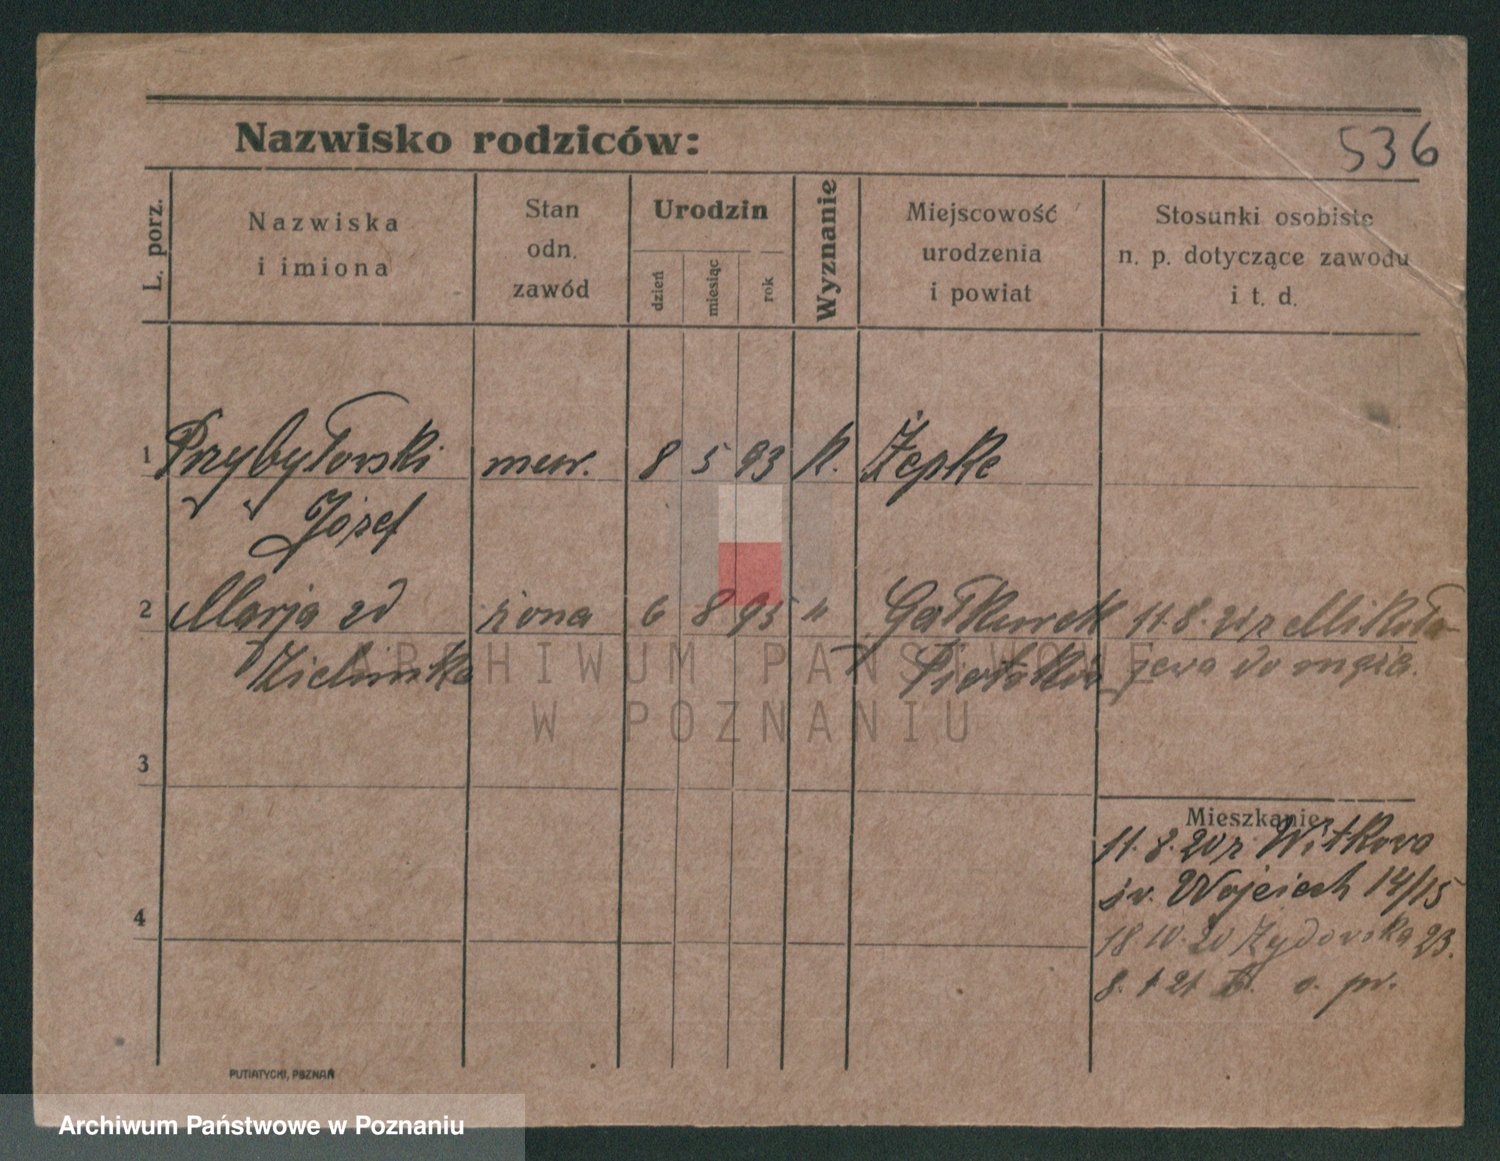 Nazwisko rodziców:
536
L. porz.
Nazwiska
i imiona
Stan
odn.
zawód
Urodzin
dzień
miesiąc
rok
Wyznanie
Miejscowość
urodzenia
i powiat
Stosunki osobiste
n. p. dotyczące zawodu
i t. d.
1 Przybyłowski 8 5 93 k. Żepke
Józef
2 Marja zd żona 6 8 95 " 11.8.21 z Mikoła
Zielińska jewa do męża.
3
Mieszkanie
11.8.20 z Witkowa
św. Wojciech 14/15
4
18 10 20 Żydowska 23.
8. 1 21 o. pr.
PUTIATYCKI, POZNAŃ
ARCHIWUM PAŃSTWOWE
W POZNANIU
Archiwum Państwowe w Poznaniu